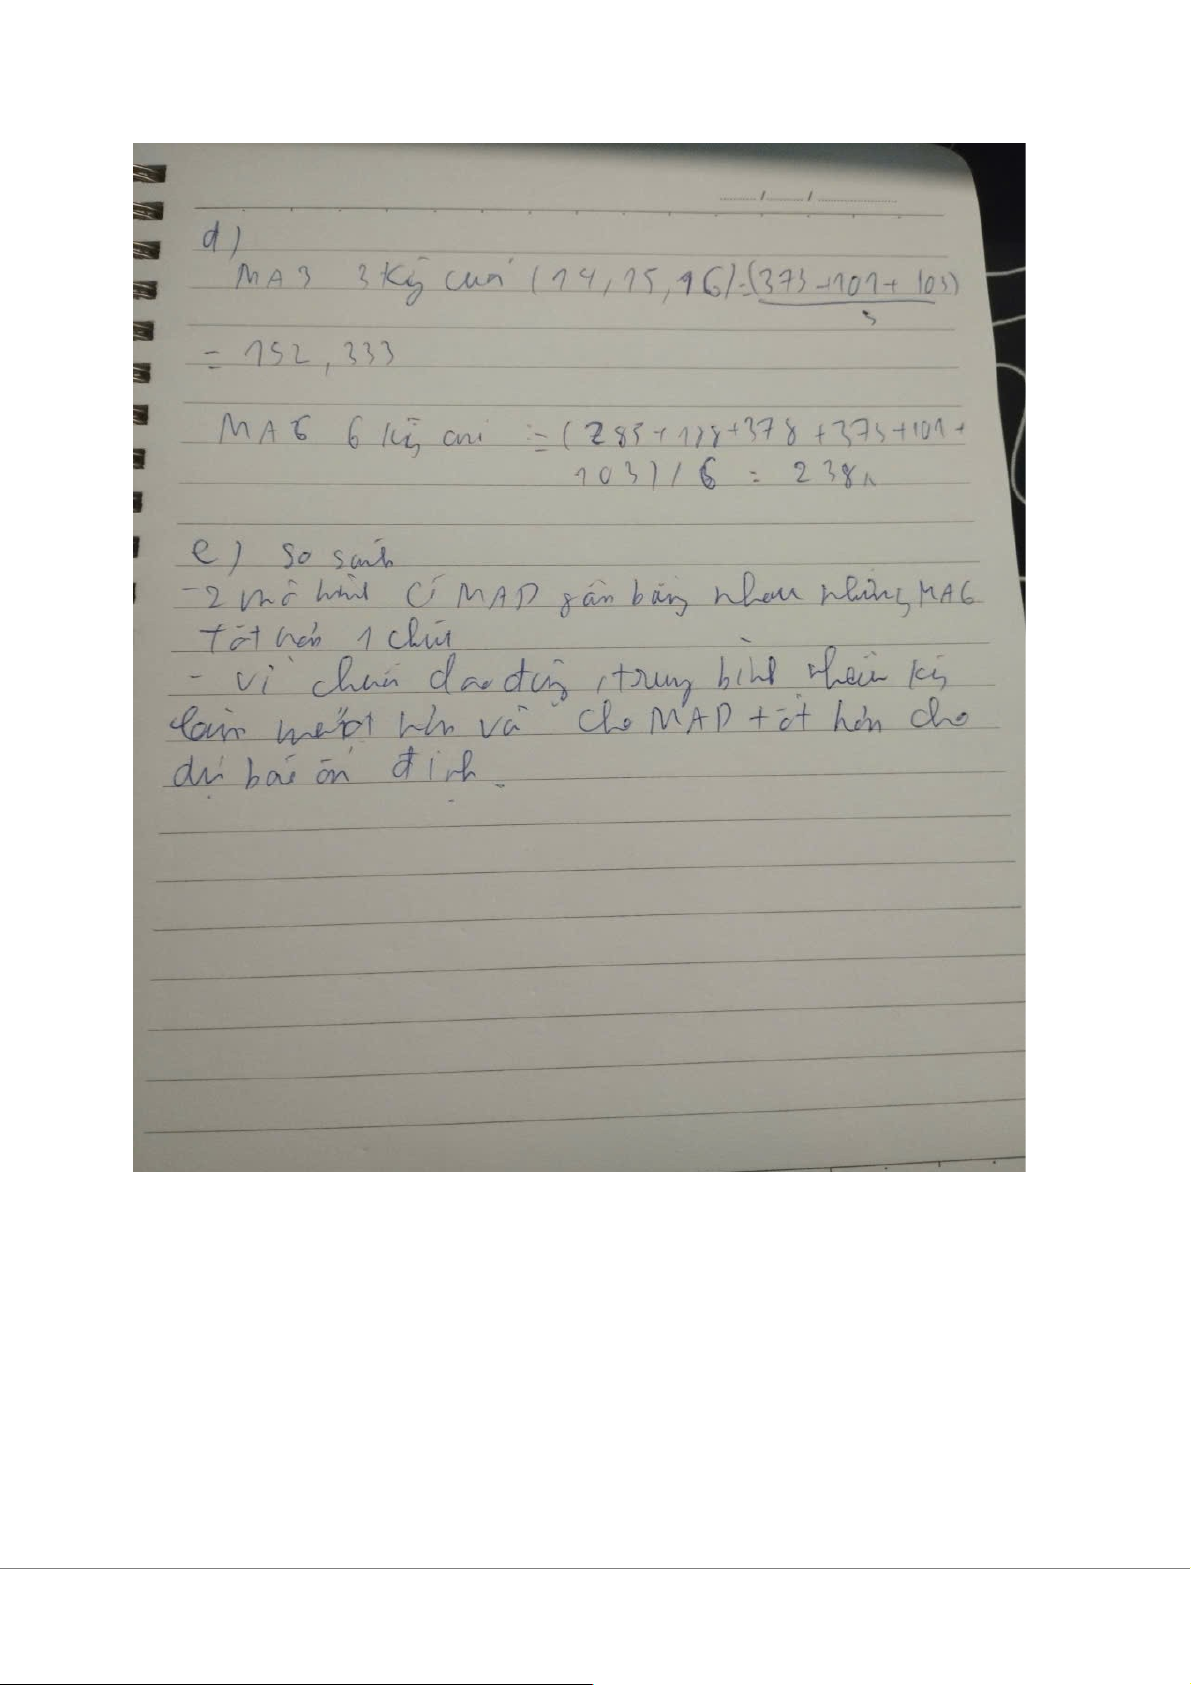 d)
MA3 3 kỳ cuối (14, 15, 16) = (373 + 101 + 103)
3
= 192,333
MA6 6 kỳ cuối = (285 + 188 + 378 + 373 + 101 +
103) / 6 = 238
e) So sánh
- 2 mô hình có MAD gần bằng nhau nhưng MA6
tốt hơn 1 chút
- Vì chuỗi dao động, trung bình nhiều kỳ
làm mượt hơn và cho MAD tốt hơn cho
dự báo ổn định